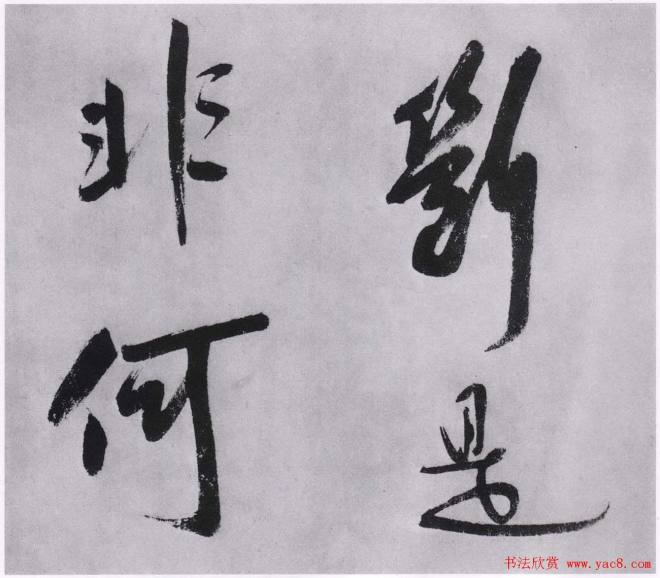 斷是
非何
书法欣赏 www.yac8.com